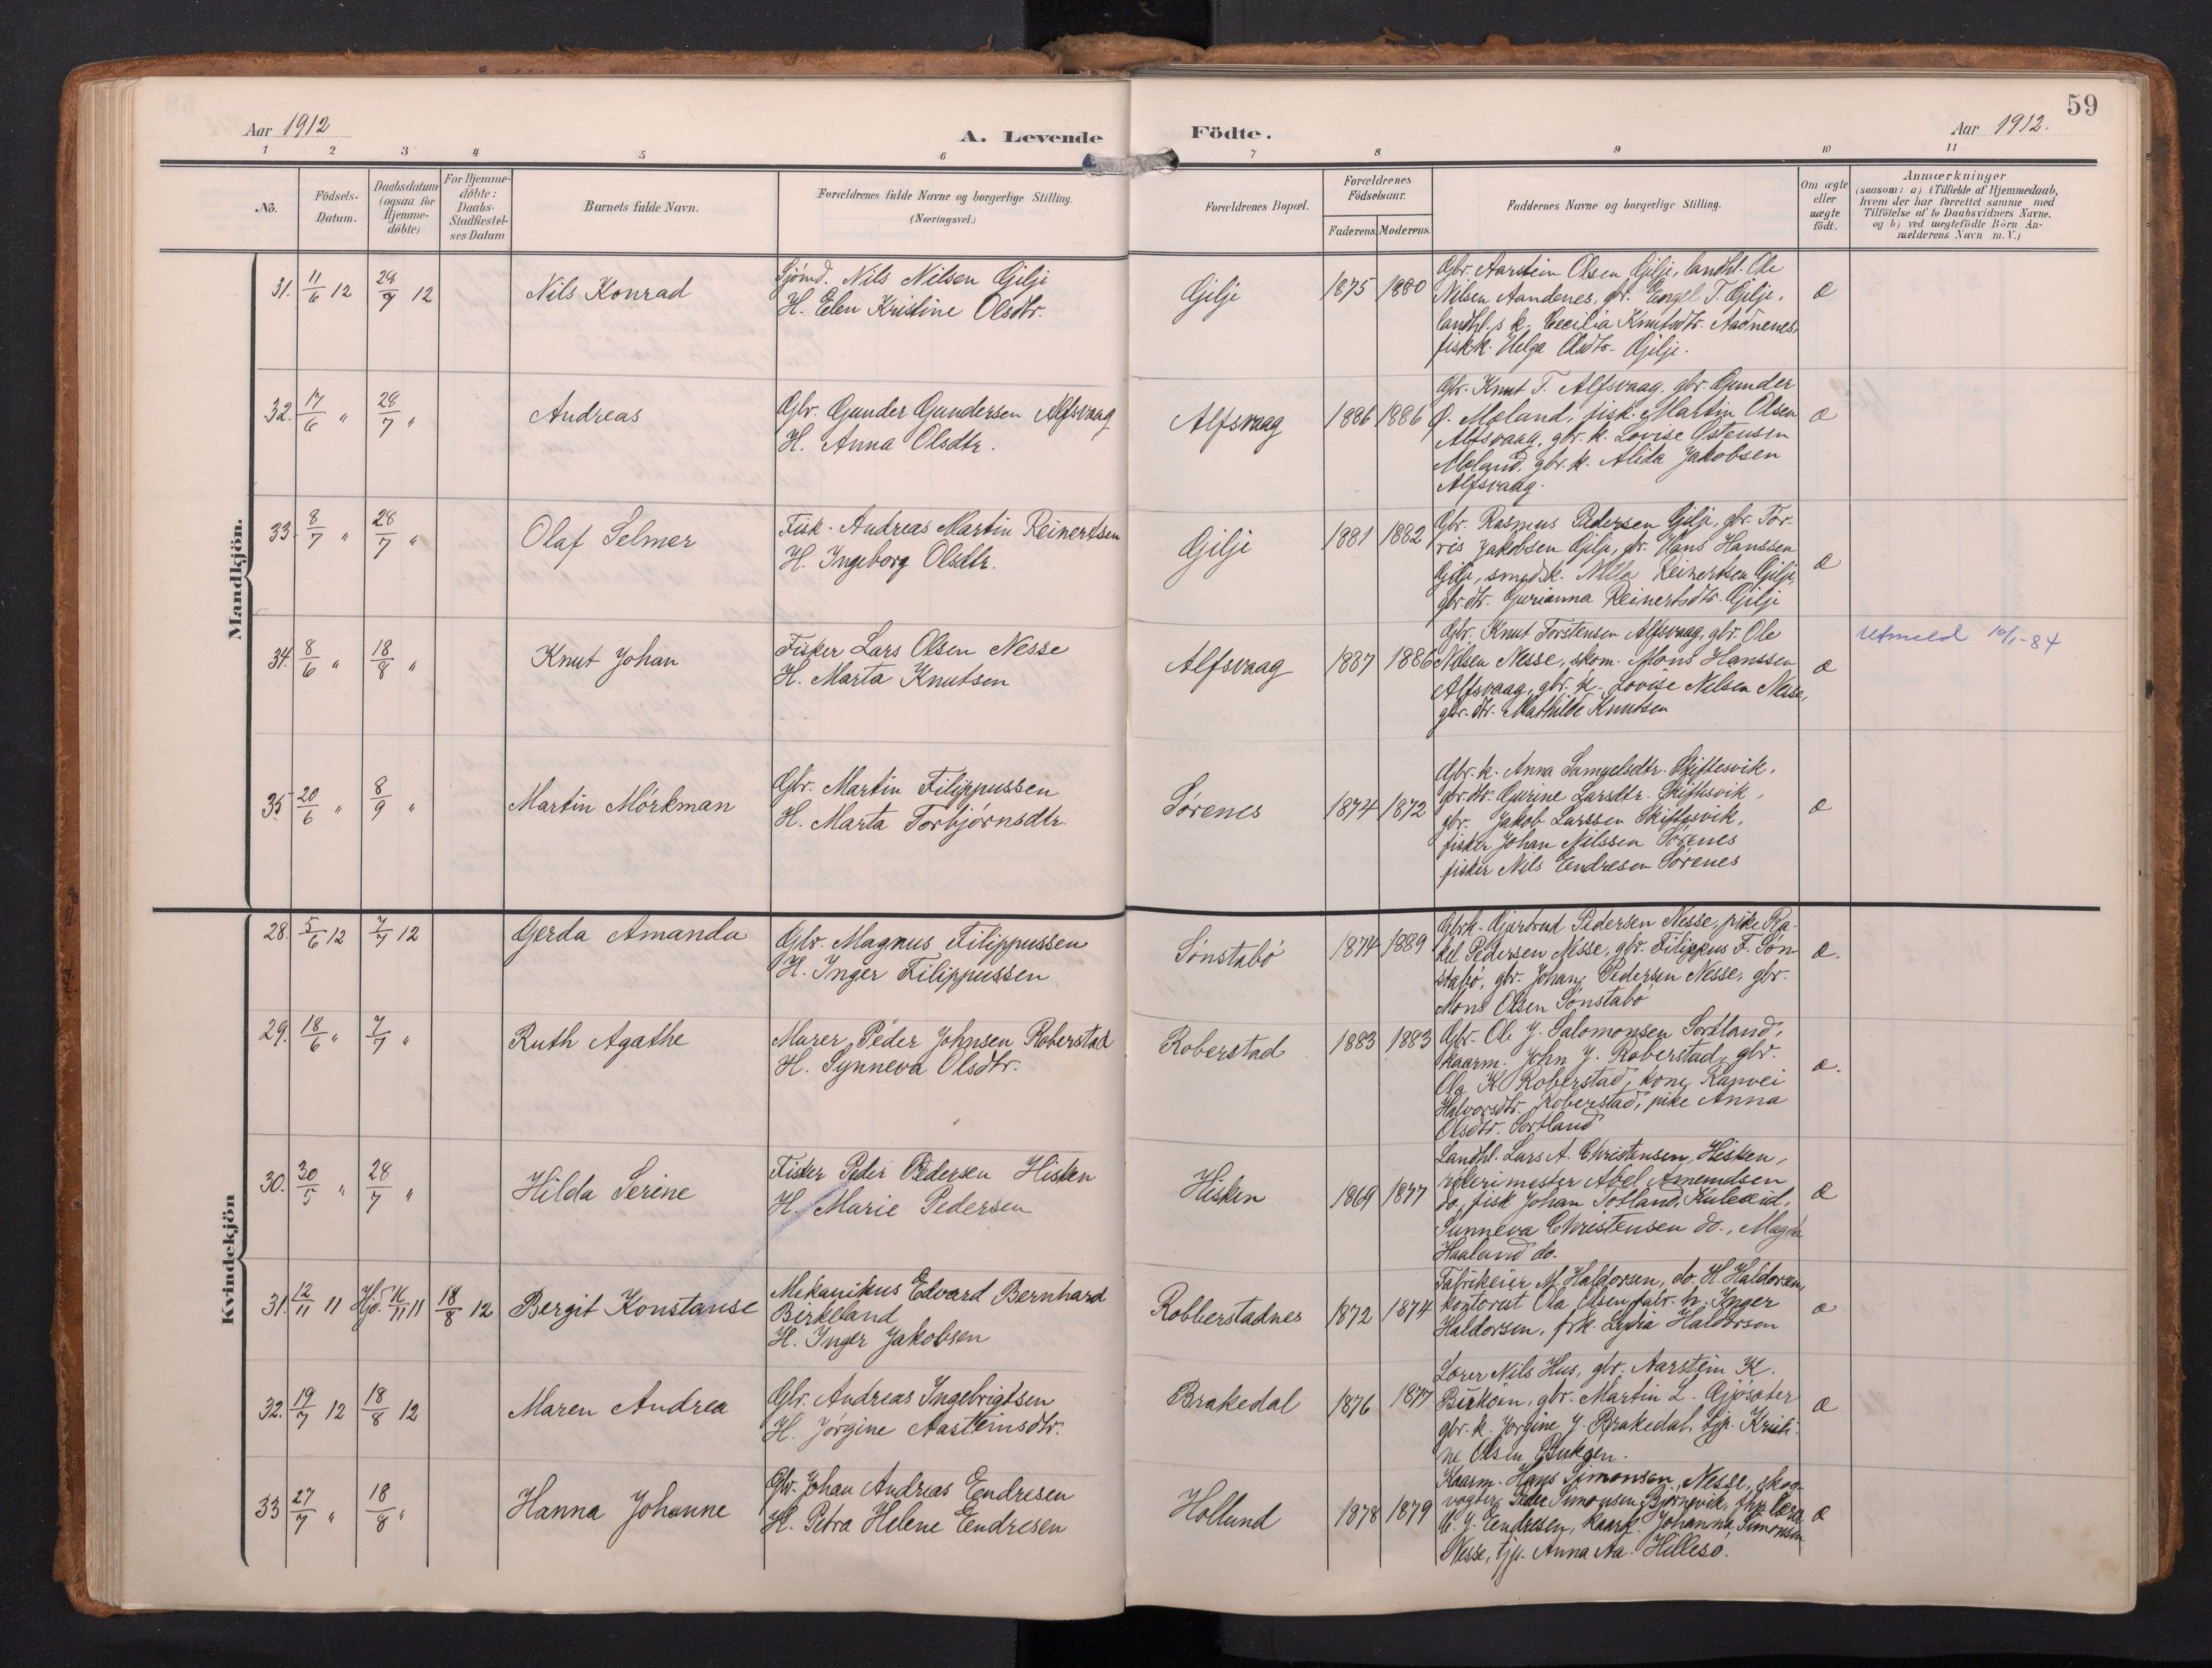 59
Aar 1912
A. Levende Födte.
Aar 1912.
1 2 3 4 5 6 7 8 9 10 11
No.
Födsels-
Datum.
Daabsdatum
(ogsaa for
Hjemme-
döbte)
For Hjemme-
döbte:
Daabs-
Stadfæstel-
ses Datum
Barnets fulde Navn.
Forældrenes fulde Navne og borgerlige Stilling.
(Næringsvei.)
Forældrenes Bopæl.
Forældrenes
Födselsaar.
Faderens. Moderens.
Faddernes Navne og borgerlige Stilling.
Om ægte
eller
uægte
födt.
Anmærkninger
(saasom: a) i Tilfælde af Hjemmedaab,
hvem der har forrettet samme med
Tilföielse af to Daabsvidners Navne.
og b) ved uegtefödte Börn An-
melderens Navn m. V.)
Mandkjön.
31. 11/6 12 28/7 12
Nils Konrad
Sjömd. Nils Nilsen Gilje
H. Elen Kristine Olsdtr.
Gilje
1875 1880
Gbr. Aarstein Olsen Gilje, landhl. Ole
Nilsen Aandenes, gbr. Engel T. Gilje,
landhl.s k. Cecilia Knutsdtr. Aadnenes,
fisk.k. Helga Olsdtr. Gilje.
æ
32. 17/6 " 28/7 "
Andreas
Gbr. Gunder Gundersen Alfsvaag
H. Anna Olsdtr.
Alfsvaag
1886 1886
Gbr. Knut T. Alfsvaag, gbr. Gunder
Ø. Mæland, fisk. Martin Olsen
Alfsvaag, gbr. k. Lovise Østensen
Mæland, gbr. k. Alida Jakobsen
Alfsvaag.
æ
33. 8/7 " 28/7 "
Olaf Selmer
Fisk. Andreas Martin Reinertsen
H. Ingeborg Olsdtr.
Gilje
1881 1882
Gbr. Rasmus Pedersen Gilje, gbr. Tor-
ris Jakobsen Gilje, gbr. Hans Hanssen
Gilje, smeds k. Nilla Reinertsen Gilje,
gbr. dtr. Gurianna Reinertsdtr. Gilje
æ
34. 8/6 " 18/8 "
Knut Johan
Fisker Lars Olsen Nesse
H. Marta Knutsen
Alfsvaag
1887 1886
Gbr. Knut Torstensen Alfsvaag, gbr. Ole
Nilsen Nesse, skom. Mons Hanssen
Alfsvaag, gbr. k. Lovise Nilsen Nesse,
gbr. dtr. Mathilde Knutsen
æ
Utmeld 10/1-84
35 20/6 " 8/9 "
Martin Mörkman
Gbr. Martin Filippussen
H. Marta Torbjørnsdtr.
Sørenes
1874 1872
Gbr. k. Anna Samuelsdtr. Skiftesvik,
gbr. dtr. Gurine Larsdtr. Skiftesvik,
gbr. Jakob Larssen Skiftesvik,
fisker Johan Nilssen Sørenes
fisker Nils Endresen Sørenes
æ
Kvindekjön
28. 5/6 12 7/7 12
Gerda Amanda
Gbr. Magnus Filippussen
H. Inger Filippussen
Sønstabö
1874 1889
Gbrk. Gjertrud Pedersen Nesse, pike Ra-
kel Pedersen Nesse, gbr. Filippus F. Søn-
stabö, gbr. Johan Pedersen Nesse, gbr.
Mons Olsen Sønstabö
æ.
29. 18/6 " 7/7 "
Ruth Agathe
Murer Peder Johnsen Roberstad
H. Synneva Olsdtr.
Roberstad
1883 1883
Gbr. Ole J. Salomonsen Sortland,
kaarm. John J. Roberstad, gbr.
Ola K. Roberstad, kone Ranvei
Halvorsdtr. Roberstad, pike Anna
Olsdtr. Sortland
æ.
30. 30/5 " 28/7 "
Hilda Serine
Fisker Peder Pedersen Hisken
H. Marie Pedersen
Hisken
1869 1877
Landhl. Lars A. Christensen, Hisken,
rökerimester Abel Amundsen
do, fisk Johan Totland, Kuleseid,
Sunneva Christensen do., Magda
Haaland do.
æ
31. 12/11 11 Hjd. 16/11 11 18/8 12
Bergit Konstanse
Mekanikus Edvard Bernhard
Birkeland
H. Inger Jakobsen
Robberstadnes
1872 1874
Fabrikeier M. Haldorsen, do. H. Haldorsen,
kontorist Ola Olsen, fabr. h. Inger
Haldorsen, frk. Lydia Haldorsen
æ
32. 19/7 12 18/8 12
Maren Andrea
Gbr. Andreas Ingebrigtsen
H. Jörgine Aasteinsdtr.
Brakedal
1876 1877
Lærer Nils Hus, gbr. Aarstein K.
Gbr. Martin L. Gjösæter
gbr. k. Jorgine J. Brakedal, tjp. Kristi-
ne Olsen
æ
33 27/7 " 18/8 "
Hanna Johanne
Gbr. Johan Andreas Endresen
H. Petra Helene Endresen
Hollund
1878 1879
Kaarm. Hans Simonsen, Nesse, skog-
vogter Peder Simonsen Bjørnevik,
E. J. Endresen, kaark. Johanna Simonsen
Nesse, tjp. Anna Aa. Hillesø.
æ